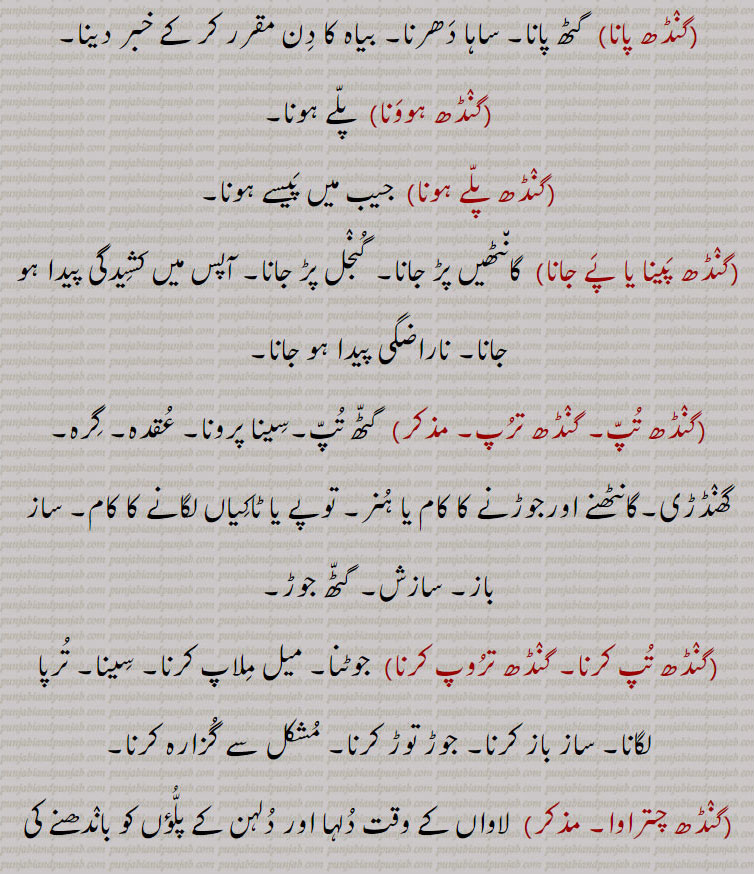 (گنْڈھ پانا) گٹھ پانا۔ ساہا دَھرنا۔ بیاہ کا دِن مقرر کر کے خبر دینا۔
(گنْڈھ ہووَنا) پلّے ہونا۔
(گنْڈھ پلّے ہونا) جیب میں پَیسے ہونا۔
(گنْڈھ پَینا یا پَے جانا) گانْٹھیں پڑ جانا۔ گُنْجل پڑ جانا۔ آپس میں کشِیدگی پیدا ہو
جانا۔ ناراضگی پیدا ہو جانا۔
(گنْڈھ تُپّ۔ گنْڈھ ترُپ۔ مذکر) گٹھّ تُپّ۔سِینا پرونا۔ عُقدہ۔ گِرہ۔
گھنْڈڑی۔گانٹھنے اورجوڑنے کا کام یا ہُنر۔ توپے یا ٹاکِیاں لگانے کا کام۔ ساز
باز۔ سازش۔ گٹھّ جوڑ۔
(گنْڈھ تُپ کرنا۔ گنْڈھ ترُوپ کرنا) جوٹنا۔ میل مِلاپ کرنا۔ سِینا۔ تُرپا
لگانا۔ ساز باز کرنا۔ جوڑ توڑ کرنا۔ مُشکل سے گُزارہ کرنا۔
(گنْڈھ چتراوا۔ مذکر) لاواں کے وقت دُلہا اور دُلہن کے پلُّوَں کو بانْدھنے کی